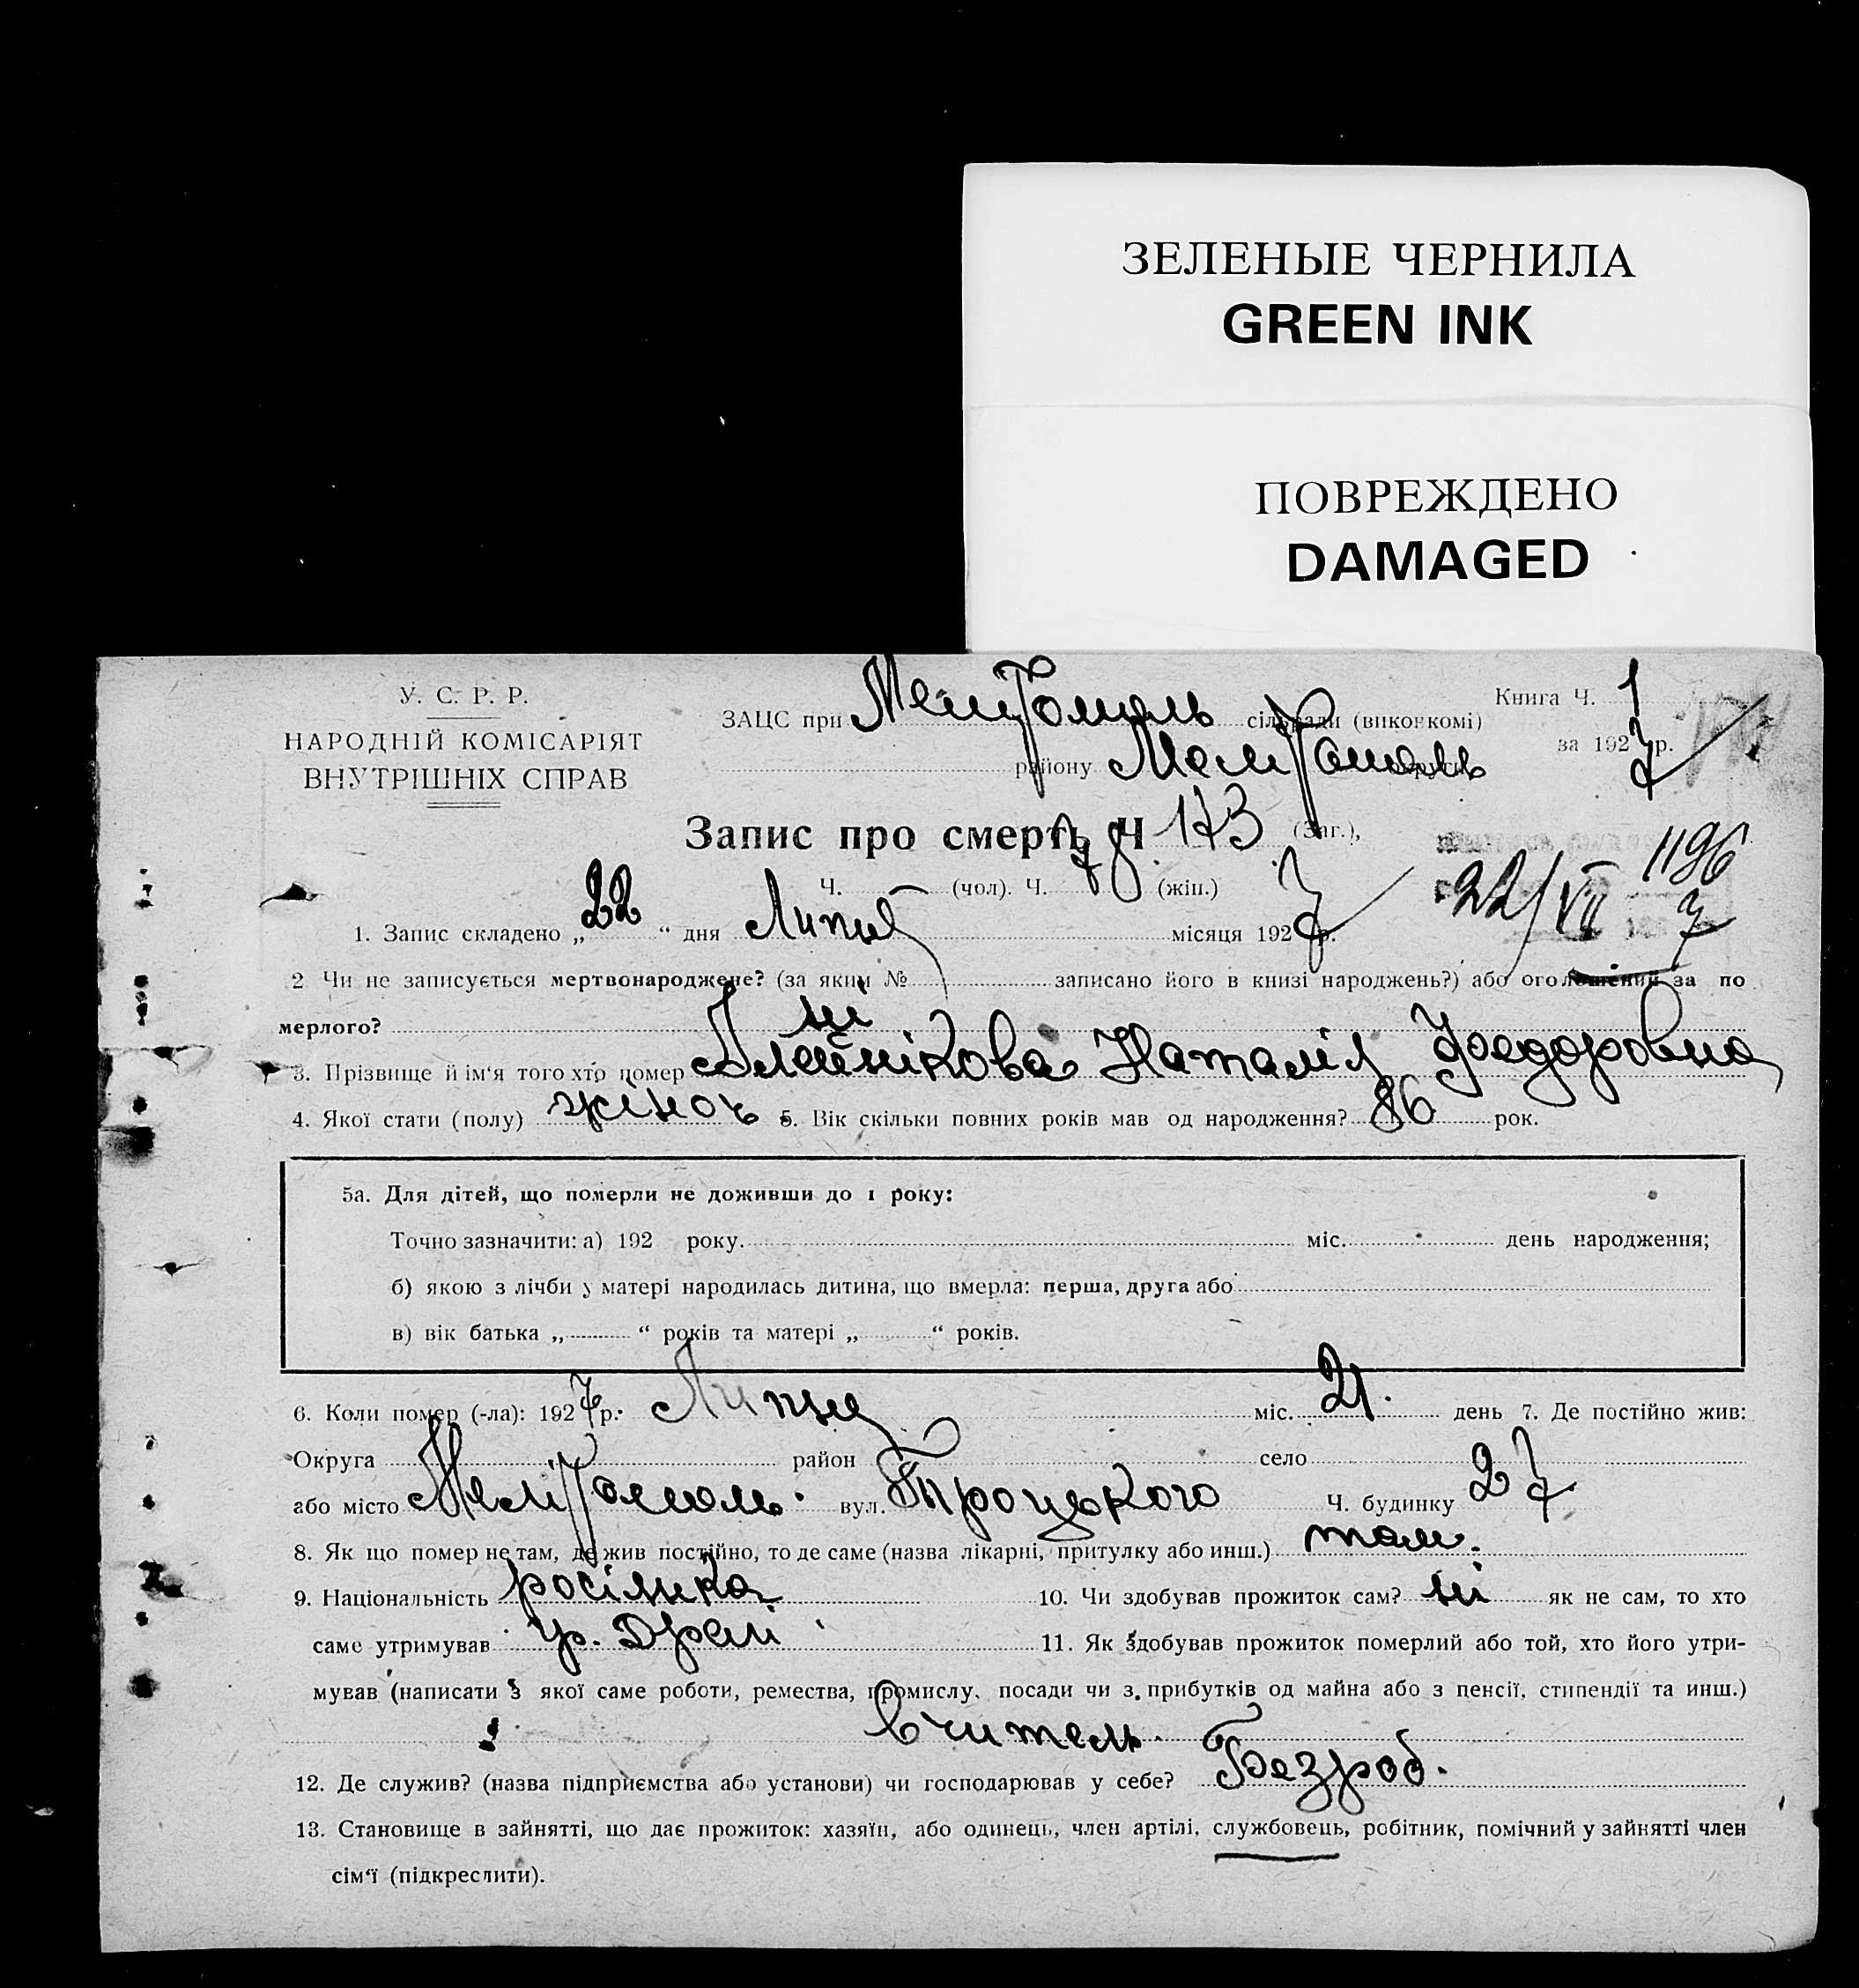 ЗЕЛЕНЫЕ ЧЕРНИЛА
GREEN INK
ПОВРЕЖДЕНО
DAMAGED
У. С. Р. Р.
НАРОДНІЙ КОМІСАРІЯТ
ВНУТРІШНІХ СПРАВ
ЗАЦС при Мелітополь сільради (виконкомі)
району Мелітополь округи
Книга Ч. 1
за 1927 р.
Запис про смерть Ч 173 (Заг.),
Ч. — (чол). Ч. 78 (жін.)
1196
22/VII 7
1. Запис складено „22“ дня Липця місяця 1927 р.
2 Чи не записується мертвонароджене? (за яким № записано його в книзі народжень?) або оголошений за по
мерлого? ні
3. Прізвище й ім'я того хто помер Алейнікова Наталія Федоровна
4. Якої стати (полу) жіноч 5. Вік скільки повних років мав од народження? 86 рок.
5а. Для дітей, що померли не доживши до 1 року:
Точно зазначити: а) 192 року. міс. день народження;
б) якою з лічби у матері народилась дитина, що вмерла: перша, друга або
в) вік батька „ “ років та матері „ “ років.
6. Коли помер (-ла): 1927 р. Липця міс. 21. день 7. Де постійно жив:
Округа район село
або місто Мелітополь. вул. Троцького Ч. будинку 27
8. Як що помер не там, де жив постійно, то де саме (назва лікарні, притулку або инш.) там.
9. Національність росіянка 10. Чи здобував прожиток сам? ні як не сам, то хто
саме утримував 11. Як здобував прожиток померлий або той, хто його утри-
мував (написати з якої саме роботи, ремества, промислу, посади чи з прибутків од майна або з пенсії, стипендії та инш.)
Вчитель.
12. Де служив? (назва підприємства або установи) чи господарював у себе? Безроб.
13. Становище в зайнятті, що дає прожиток: хазяїн, або одинець, член артілі, службовець, робітник, помічний у зайнятті член
сім'ї (підкреслити).